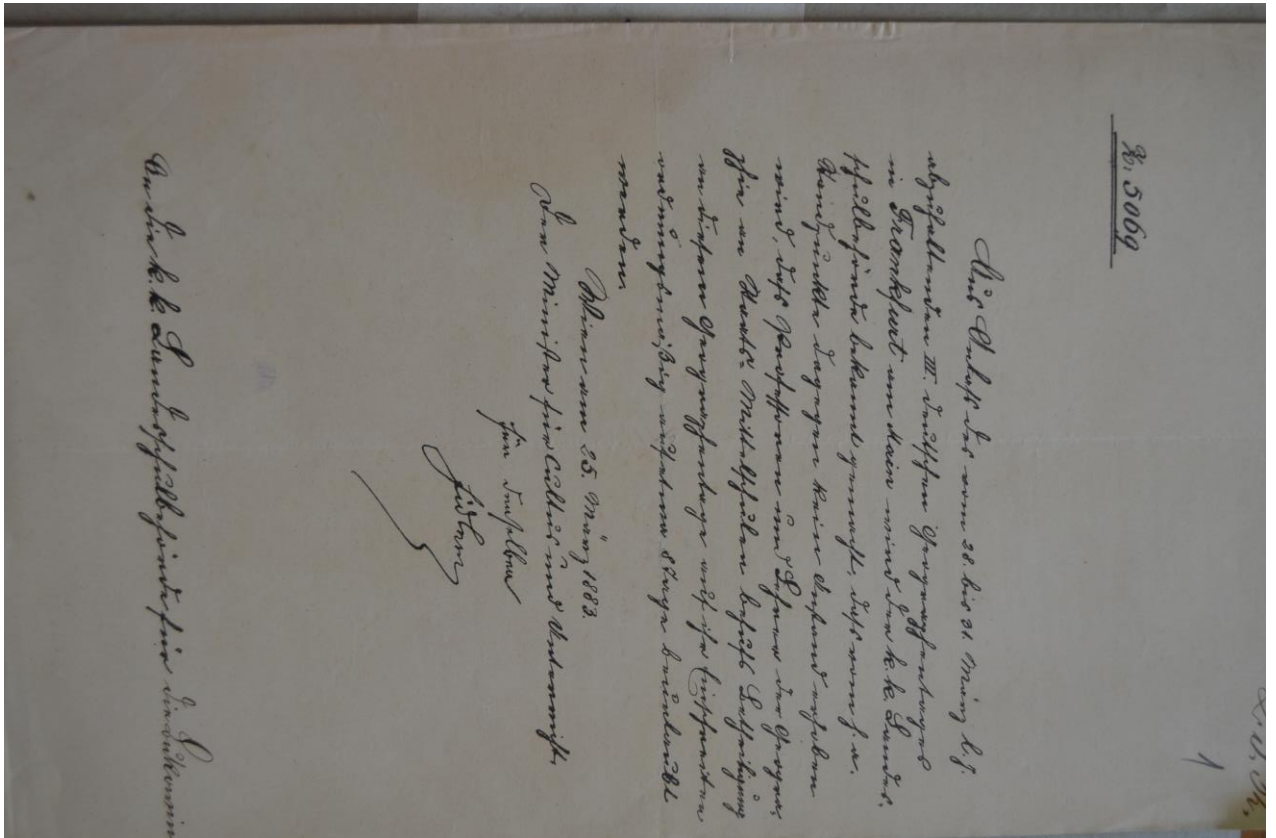 Z. 5069
Aus Anlaß des vom 28. bis 31. März l. J.
abzuhaltenden III. deutschen Geographentages
in Frankfurt am Main wird der k. k. Landes-
schulbehörde bekannt gemacht, daß von h. a.
Standpunkte dagegen kein Anstand erhoben
wird, daß Professoren und Lehrer der Geogra-
phie an Staats-Mittelschulen behufs Betheiligung
an diesem Geographentage auf ihr Einschreiten
ordnungsmäßig auf etwa 8 Tage beurlaubt
werden.
Wien am 25. März 1883.
Der Minister für Cultus und Unterricht.
Für denselben
An die k. k. Landesschulbehörde für die Bukowina
1